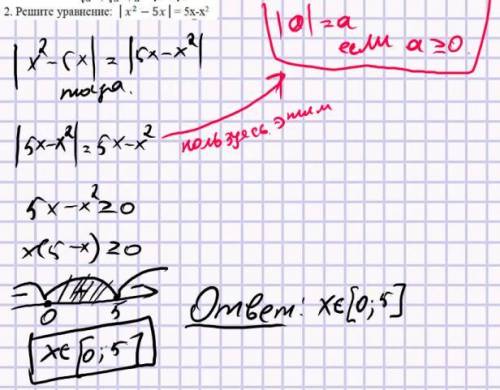 2. Решите уравнение: |x² − 5x| = 5x-x²
|a| = a
если a ≥ 0
|x² − 5x| = |5x − x²|
тогда.
|5x-x²| = 5x-x²
пользуясь этим
5x − x² ≥ 0
x(5−x) ≥ 0
− + −
0 5
x∈[0;5]
Ответ: x∈[0;5]